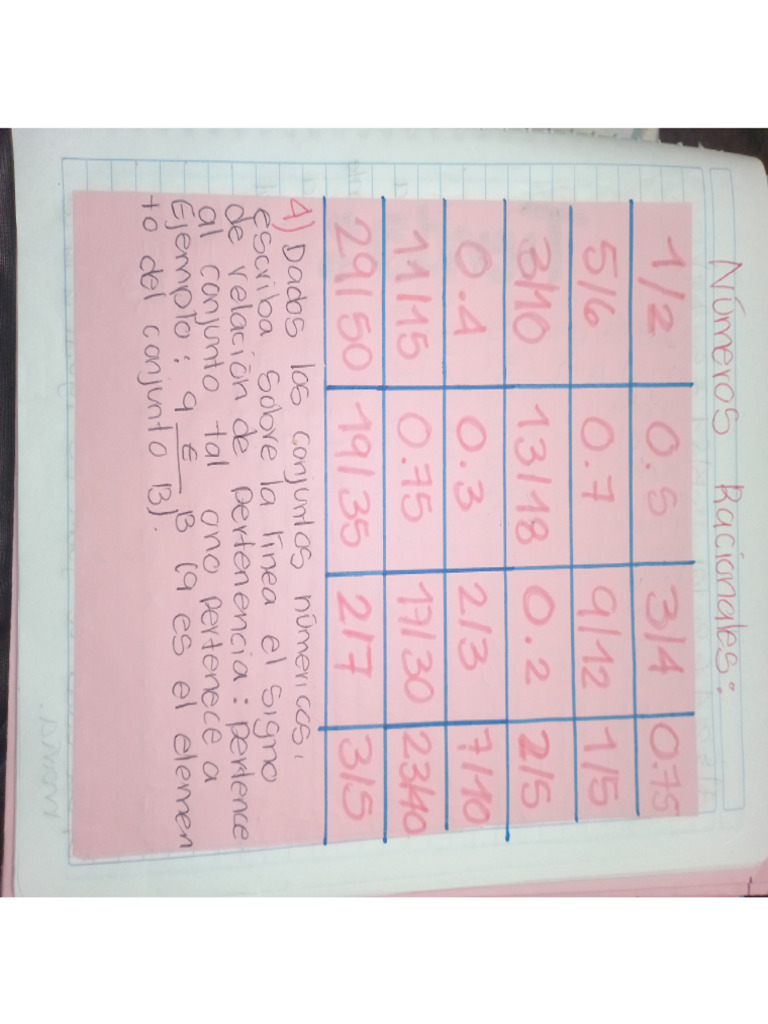 Números Racionales:
1/2 0.5 3/4 0.75
5/6 0.7 9/12 1/5
3/10 13/18 0.2 2/5
0.4 0.3 2/3 7/10
11/15 0.75 17/30 23/40
29/50 19/35 2/7 3/5
4) Dados los conjuntos númericos,
escriba sobre la línea el signo
de relación de pertenencia: pertence
al conjunto tal ono pertenece a
Ejemplo: 9 ∈ B (9 es el elemen
to del conjunto B).